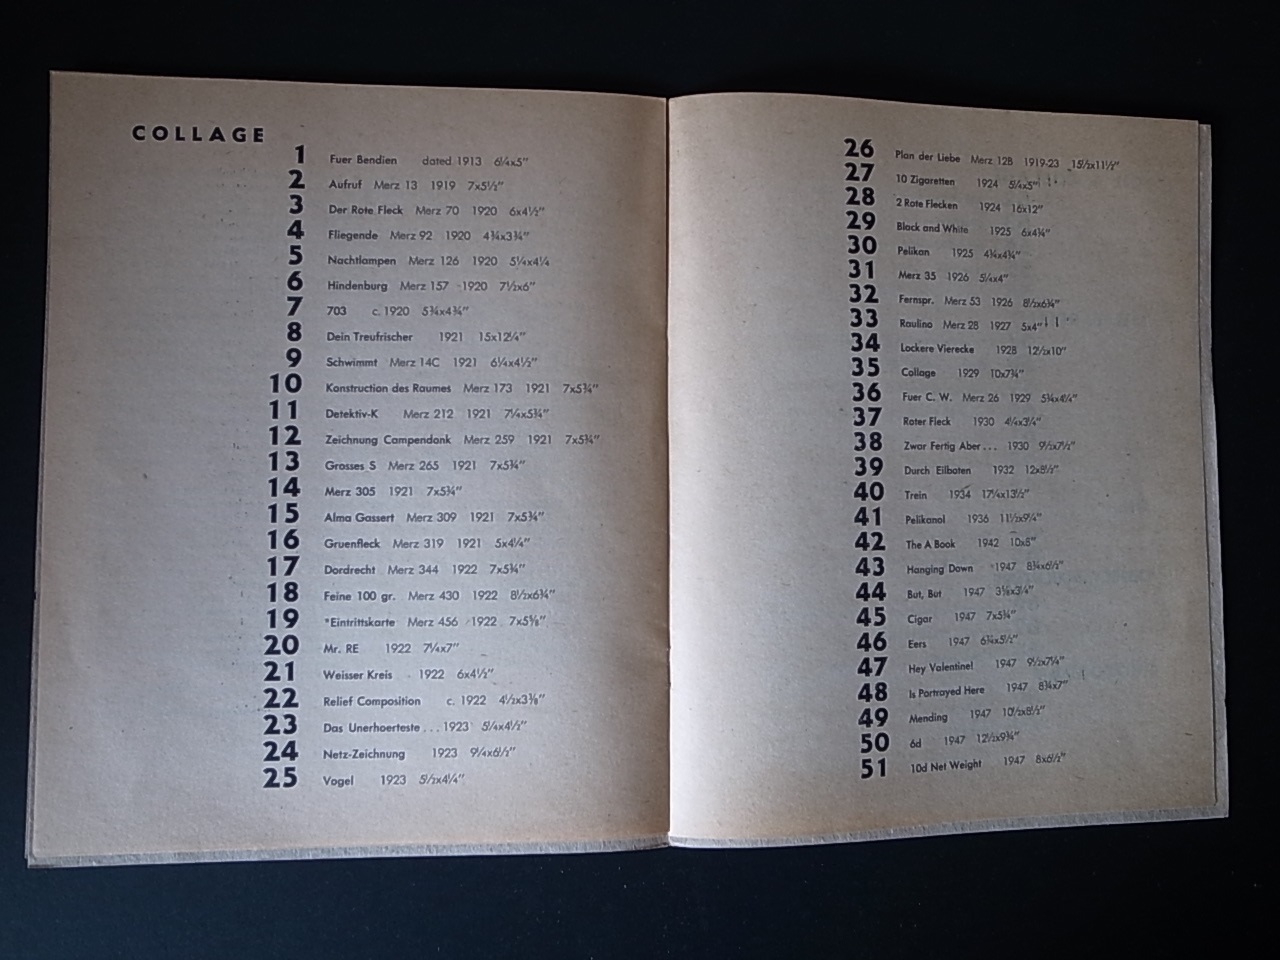 COLLAGE
1 Fuer Bendien dated 1913 6¼x5"
2 Aufruf Merz 13 1919 7x5½"
3 Der Rote Fleck Merz 70 1920 6x4½"
4 Fliegende Merz 92 1920 4¾x3¾"
5 Nachtlampen Merz 126 1920 5¼x4¼
6 Hindenburg Merz 157 1920 7½x6"
7 703 c. 1920 5¾x4¾"
8 Dein Treufrischer 1921 15x12¼"
9 Schwimmt Merz 14C 1921 6¼x4½"
10 Konstruction des Raumes Merz 173 1921 7x5¾"
11 Detektiv-K Merz 212 1921 7¼x5¾"
12 Zeichnung Campendonk Merz 259 1921 7x5¾"
13 Grosses S Merz 265 1921 7x5¾"
14 Merz 305 1921 7x5¾"
15 Alma Gassert Merz 309 1921 7x5¾"
16 Gruenfleck Merz 319 1921 5x4¼"
17 Dordrecht Merz 344 1922 7x5¾"
18 Feine 100 gr. Merz 430 1922 8½x6¾"
19 *Eintrittskarte Merz 456 1922 7x5⅝"
20 Mr. RE 1922 7¼x7"
21 Weisser Kreis 1922 6x4½"
22 Relief Composition c. 1922 4½x3⅜"
23 Das Unerhoerteste . . . 1923 5¼x4½"
24 Netz-Zeichnung 1923 9¼x6½"
25 Vogel 1923 5½x4¼"
26 Plan der Liebe Merz 12B 1919-23 15½x11½"
27 10 Zigaretten 1924 5¼x5"
28 2 Rote Flecken 1924 16x12"
29 Black and White 1925 6x4¾"
30 Pelikan 1925 4¾x4¾"
31 Merz 35 1926 5¼x4"
32 Fernspr. Merz 53 1926 8½x6¾"
33 Raulino Merz 28 1927 5x4"
34 Lockere Vierecke 1928 12½x10"
35 Collage 1929 10x7¾"
36 Fuer C. W. Merz 26 1929 5¾x4¼"
37 Roter Fleck 1930 4¼x3¼"
38 Zwar Fertig Aber . . . 1930 9½x7½"
39 Durch Eilboten 1932 12x8½"
40 Trein 1934 17¼x13½"
41 Pelikanol 1936 11½x9¼"
42 The A Book 1942 10x8"
43 Hanging Down 1947 8¾x6½"
44 But, But 1947 3⅛x3¼"
45 Cigar 1947 7x5¾"
46 Eers 1947 6¾x5½"
47 Hey Valentine! 1947 9½x7¼"
48 Is Portrayed Here 1947 8¾x7"
49 Mending 1947 10½x8½"
50 6d 1947 12½x9¾"
51 10d Net Weight 1947 8x6½"